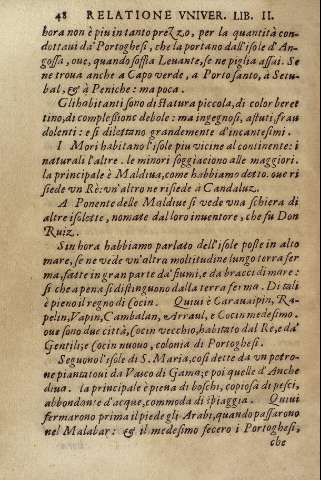 48 RELATIONE VNIVER. LIB. II.
hora non è piu in tanto prezzo, per la quantità con-
dottaui da' Portoghesi, che la portano dall'isole d'An-
gossa, oue, quando soffia Leuante, se ne piglia assai. Se
ne troua anche a Capo verde, a Porto santo, à Setu-
bal, & à Peniche: ma poca.
Gli habitanti sono di statura piccola, di color beret
tino, di complessione debole: ma ingegnosi, astuti, frau
dolenti: e si dilettano grandemente d'incantesimi.
I Mori habitano l'isole piu vicine al continente: i
naturali l'altre. le minori soggiaciono alle maggiori.
la principale è Maldiua, come habbiamo detto. oue ri
siede vn Rè: vn'altro ne risiede à Candaluz.
A Ponente delle Maldiue si vede vna schiera di
altre isolette, nomate dal loro inuentore, che fu Don
Ruiz.
Sin hora habbiamo parlato dell'isole poste in alto
mare, se ne vede vn'altra moltitudine lungo terra fer
ma, fatte in gran parte da' fiumi, e da bracci di mare:
si che a pena si distinguono dalla terra ferma. Di tali
è pieno il regno di Cocin. Quiui è Carauaipin, Ra-
pelin, Vapin, Cambalan, Arraul, e Cocin medesimo.
oue sono due città, Cocin vecchio, habitato dal Re, e da'
Gentili; e Cocin nuouo, colonia di Portoghesi.
Seguono l'isole di S. Maria, così dette da vn petro-
ne piantatoui da Vasco di Gama; e poi quelle d'Anche
diua. la principale è piena di boschi, copiosa di pesci,
abbondante d'acque, commoda di spiaggia. Quiui
fermarono prima il piede gli Arabi, quando passarono
nel Malabar: & il medesimo fecero i Portoghesi,
che